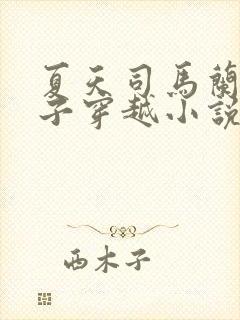 夏天司馬蘭
子穿越小說
西木子